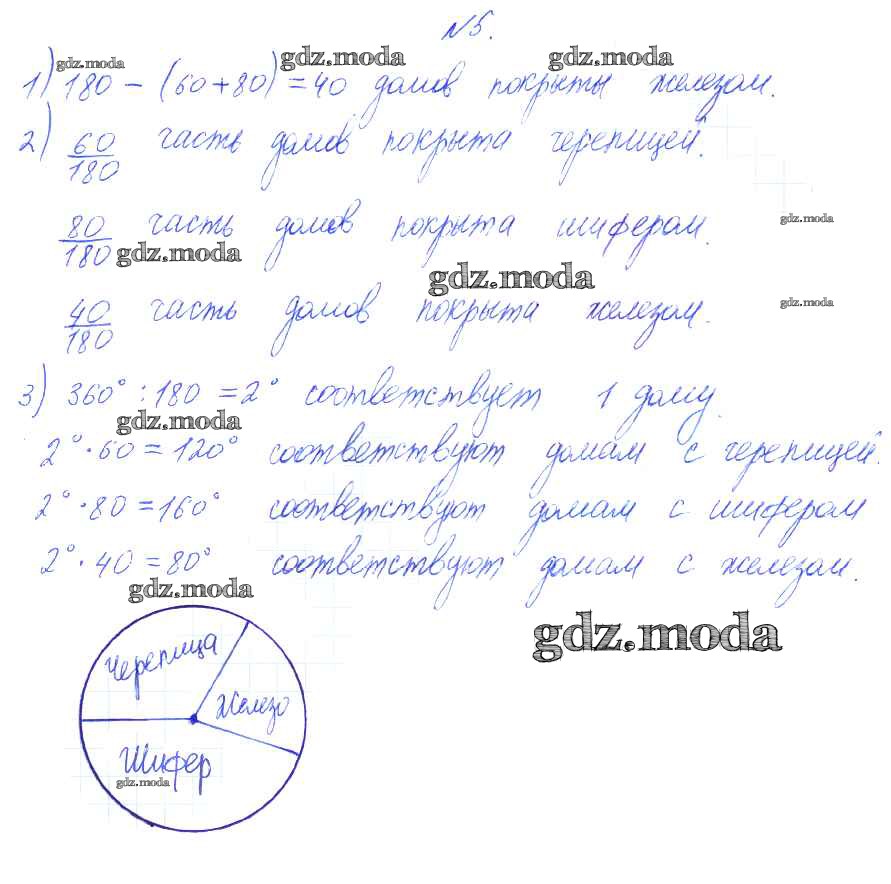 №5.
gdz.moda gdz.moda gdz.moda
1) 180 - (60+80) = 40 домов покрыты железом.
2) 60/180 часть домов покрыта черепицей.
80/180 часть домов покрыта шифером.
gdz.moda
gdz.moda
gdz.moda
40/180 часть домов покрыта железом.
gdz.moda
3) 360° : 180 = 2° соответствует 1 дому.
gdz.moda
2° · 60 = 120° соответствуют домам с черепицей.
2° · 80 = 160° соответствуют домам с шифером
2° · 40 = 80° соответствуют домам с железом.
gdz.moda
gdz.moda
Черепица
Железо
Шифер
gdz.moda